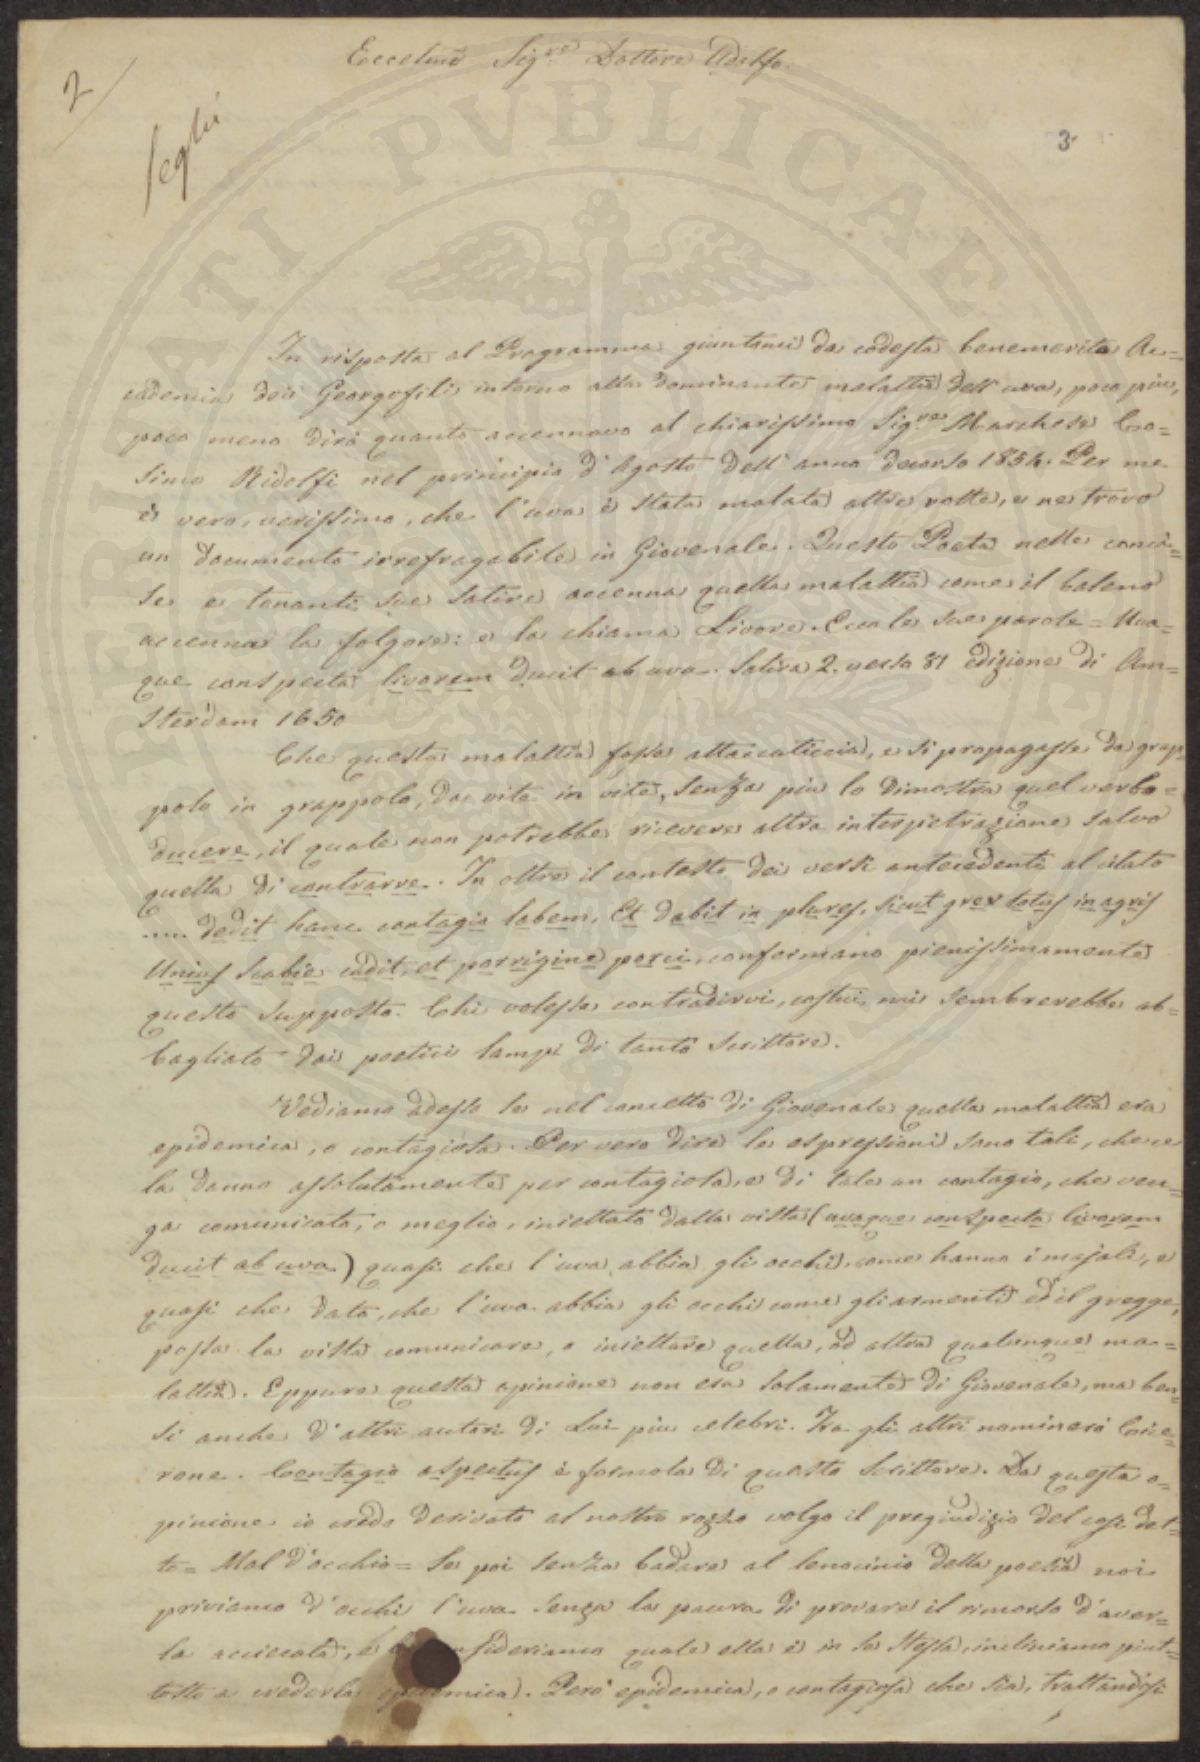 Eccelmo Sig.re Dottore Adolfo.
2
3
In risposta al Programma giuntomi da codesta benemerita Ac=
cademia dei Georgofili intorno alla dominante malattia dell'uva, poco più,
poco meno dirò quanto accennavo al chiarissimo Sig.re Marchese Co=
simo Ridolfi nel principio d'Agosto dell'anno decorso 1854. Per me
è vero, verissimo, che l'uva è stata malata altre volte, e ne trovo
un documento irrefragabile in Giovenale. Questo Poeta nelle conci=
se e tonanti sue Satire accenna quella malattia come il baleno
accenna la folgore: e la chiama Livore. Ecco le sue parole = Uva=
que conspecta livorem ducit ab uva. Satira 2. verso 81 edizione di Am=
sterdam 1650
Che questa malattia fosse attaccaticcia, e si propagasse da grap=
polo in grappolo, da vite in vite, senza più lo dimostra quel verbo =
ducere, il quale non potrebbe ricevere altra interpetrazione salvo
quella di contrarre. In oltre il contesto dei versi antecedenti al citato
..... dedit hanc contagio labem, Et dabit in plures, sicut grex totus in agris
Unius scabie cadit, et porrigine porci, confermano pienissimamente
questo supposto. Chi volesse contradirvi, costui mi sembrerebbe ab=
bagliato dai poetici lampi di tanto scrittore.
Vediamo adesso se nel concetto di Giovenale quella malattia era
epidemica, o contagiosa. Per vero dire le espressioni sono tali, che ce
la danno assolutamente per contagiosa, e di tale un contagio, che ven=
ga comunicato, o meglio, iniettato dalla vista (uvaque conspecta livorem
ducit ab uva) quasi che l'uva abbia gli occhi, come hanno i majali, e
quasi che dato, che l'uva abbia gli occhi come gli armenti ed il gregge,
possa la vista comunicare, o iniettare quella, od altra qualunque ma=
lattia. Eppure questa opinione non era solamente di Giovenale, ma ben
sì anche d'altri autori di Lui più celebri. Tra gli altri nominerò Cice=
rone. Contagio aspectus è formola di questo Scrittore. Da questa o=
pinione io credo derivato al nostro rozzo volgo il pregiudizio del così det=
to = Mal d'occhio = Se poi senza badare al lenocinio della poesia noi
priviamo d'occhi l'uva senza la paura di provare il rimorso d'aver=
la accecata, e la consideriamo quale ella è in se stessa, incliniamo piut=
tosto a crederla epidemica. Però epidemica, o contagiosa che sia, trattandosi